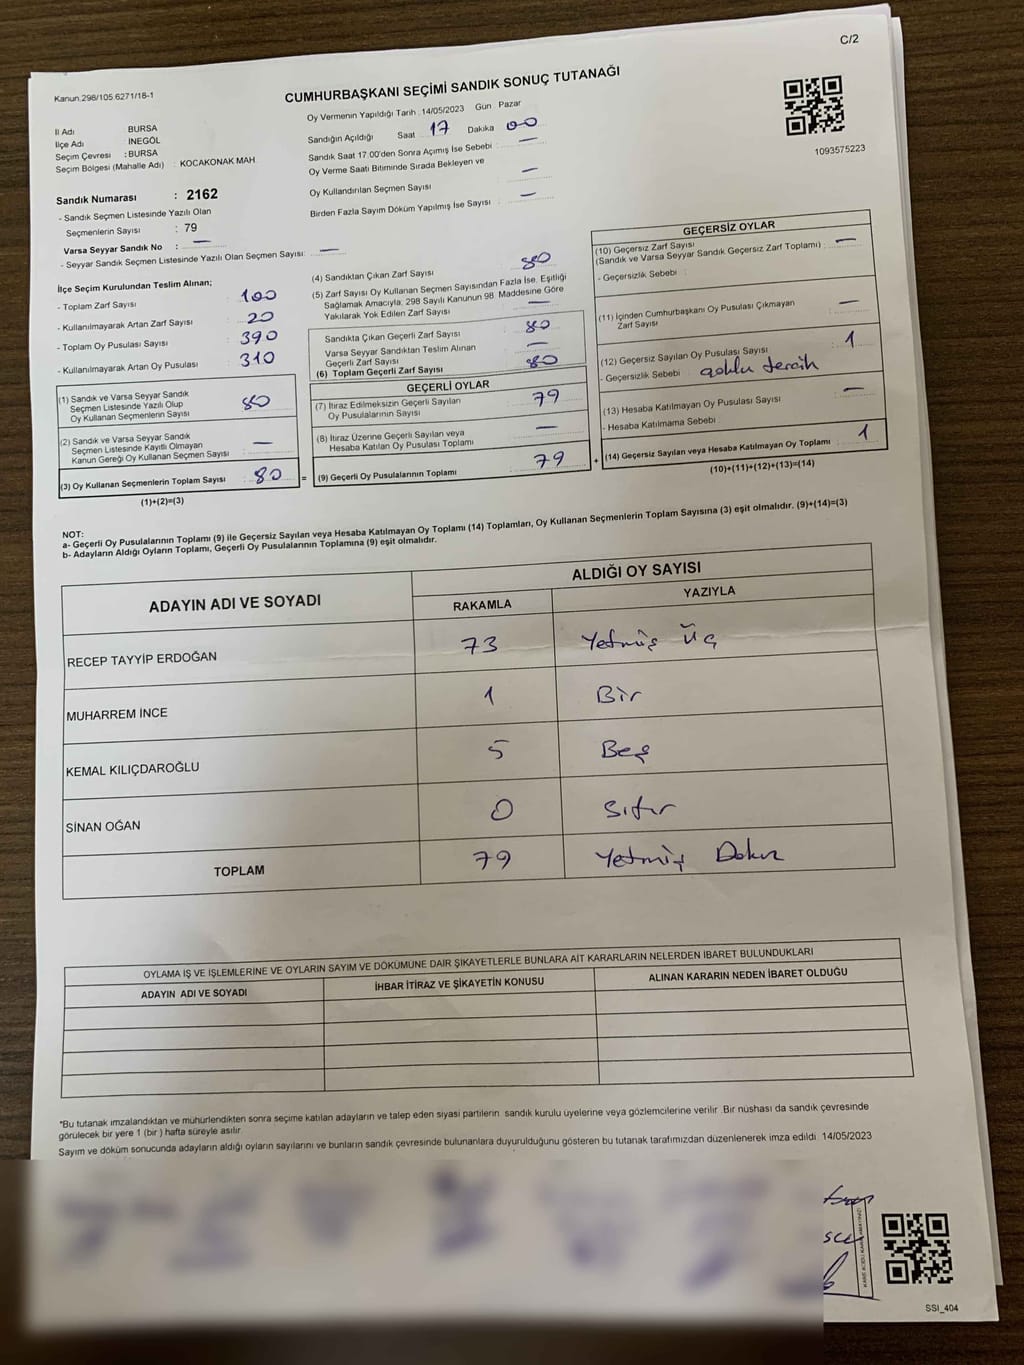 C/2
Kanun.298/105.6271/18-1
CUMHURBAŞKANI SEÇİMİ SANDIK SONUÇ TUTANAĞI
1093575223
İl Adı BURSA
İlçe Adı INEGÖL
Seçim Çevresi : BURSA
Seçim Bölgesi (Mahalle Adı) : KOCAKONAK MAH
Sandık Numarası : 2162
- Sandık Seçmen Listesinde Yazılı Olan
Seçmenlerin Sayısı : 79
Varsa Seyyar Sandık No : —
- Seyyar Sandık Seçmen Listesinde Yazılı Olan Seçmen Sayısı: —
Oy Vermenin Yapıldığı Tarih : 14/05/2023 Gün : Pazar
Sandığın Açıldığı Saat 17 Dakika 00
Sandık Saat 17.00'den Sonra Açımış İse Sebebi : —
Oy Verme Saati Bitiminde Sırada Bekleyen ve
Oy Kullandırılan Seçmen Sayısı —
Birden Fazla Sayım Döküm Yapılmış İse Sayısı : —
İlçe Seçim Kurulundan Teslim Alınan;
- Toplam Zarf Sayısı : 100
- Kullanılmayarak Artan Zarf Sayısı : 20
- Toplam Oy Pusulası Sayısı : 390
- Kullanılmayarak Artan Oy Pusulası : 310
(1) Sandık ve Varsa Seyyar Sandık
Seçmen Listesinde Yazılı Olup
Oy Kullanan Seçmenlerin Sayısı : 80
(2) Sandık ve Varsa Seyyar Sandık
Seçmen Listesinde Kayıtlı Olmayan
Kanun Gereği Oy Kullanan Seçmen Sayısı : —
(3) Oy Kullanan Seçmenlerin Toplam Sayısı : 80
(1)+(2)=(3)
(4) Sandıktan Çıkan Zarf Sayısı : 80
(5) Zarf Sayısı Oy Kullanan Seçmen Sayısından Fazla İse, Eşitliği
Sağlamak Amacıyla; 298 Sayılı Kanunun 98. Maddesine Göre
Yakılarak Yok Edilen Zarf Sayısı : —
Sandıkta Çıkan Geçerli Zarf Sayısı : 80
Varsa Seyyar Sandıktan Teslim Alınan
Geçerli Zarf Sayısı : —
(6) Toplam Geçerli Zarf Sayısı : 80
GEÇERLİ OYLAR
(7) İtiraz Edilmeksizin Geçerli Sayılan
Oy Pusulalarının Sayısı : 79
(8) İtiraz Üzerine Geçerli Sayılan veya
Hesaba Katılan Oy Pusulası Toplamı : —
= (9) Geçerli Oy Pusulalarının Toplamı : 79
GEÇERSİZ OYLAR
(10) Geçersiz Zarf Sayısı
(Sandık ve Varsa Seyyar Sandık Geçersiz Zarf Toplamı) : —
- Geçersizlik Sebebi :
(11) İçinden Cumhurbaşkanı Oy Pusulası Çıkmayan
Zarf Sayısı : —
(12) Geçersiz Sayılan Oy Pusulası Sayısı : 1
- Geçersizlik Sebebi : çoklu tercih
(13) Hesaba Katılmayan Oy Pusulası Sayısı : —
- Hesaba Katılmama Sebebi :
+ (14) Geçersiz Sayılan veya Hesaba Katılmayan Oy Toplamı : 1
(10)+(11)+(12)+(13)=(14)
NOT:
a- Geçerli Oy Pusulalarının Toplamı (9) ile Geçersiz Sayılan veya Hesaba Katılmayan Oy Toplamı (14) Toplamları, Oy Kullanan Seçmenlerin Toplam Sayısına (3) eşit olmalıdır. (9)+(14)=(3)
b- Adayların Aldığı Oyların Toplamı, Geçerli Oy Pusulalarının Toplamına (9) eşit olmalıdır.
ADAYIN ADI VE SOYADI ALDIĞI OY SAYISI
RAKAMLA YAZIYLA
RECEP TAYYİP ERDOĞAN 73 Yetmiş Üç
MUHARREM İNCE 1 Bir
KEMAL KILIÇDAROĞLU 5 Beş
SİNAN OĞAN 0 Sıfır
TOPLAM 79 Yetmiş Dokuz
OYLAMA İŞ VE İŞLEMLERİNE VE OYLARIN SAYIM VE DÖKÜMÜNE DAİR ŞİKAYETLERLE BUNLARA AİT KARARLARIN NELERDEN İBARET BULUNDUKLARI
ADAYIN ADI VE SOYADI İHBAR İTİRAZ VE ŞİKAYETİN KONUSU ALINAN KARARIN NEDEN İBARET OLDUĞU
*Bu tutanak imzalandıktan ve mühürlendikten sonra seçime katılan adayların ve talep eden siyasi partilerin sandık kurulu üyelerine veya gözlemcilerine verilir. Bir nüshası da sandık çevresinde
görülecek bir yere 1 (bir ) hafta süreyle asılır.
Sayım ve döküm sonucunda adayların aldığı oyların sayılarını ve bunların sandık çevresinde bulunanlara duyurulduğunu gösteren bu tutanak tarafımızdan düzenlenerek imza edildi. 14/05/2023
SSI_404